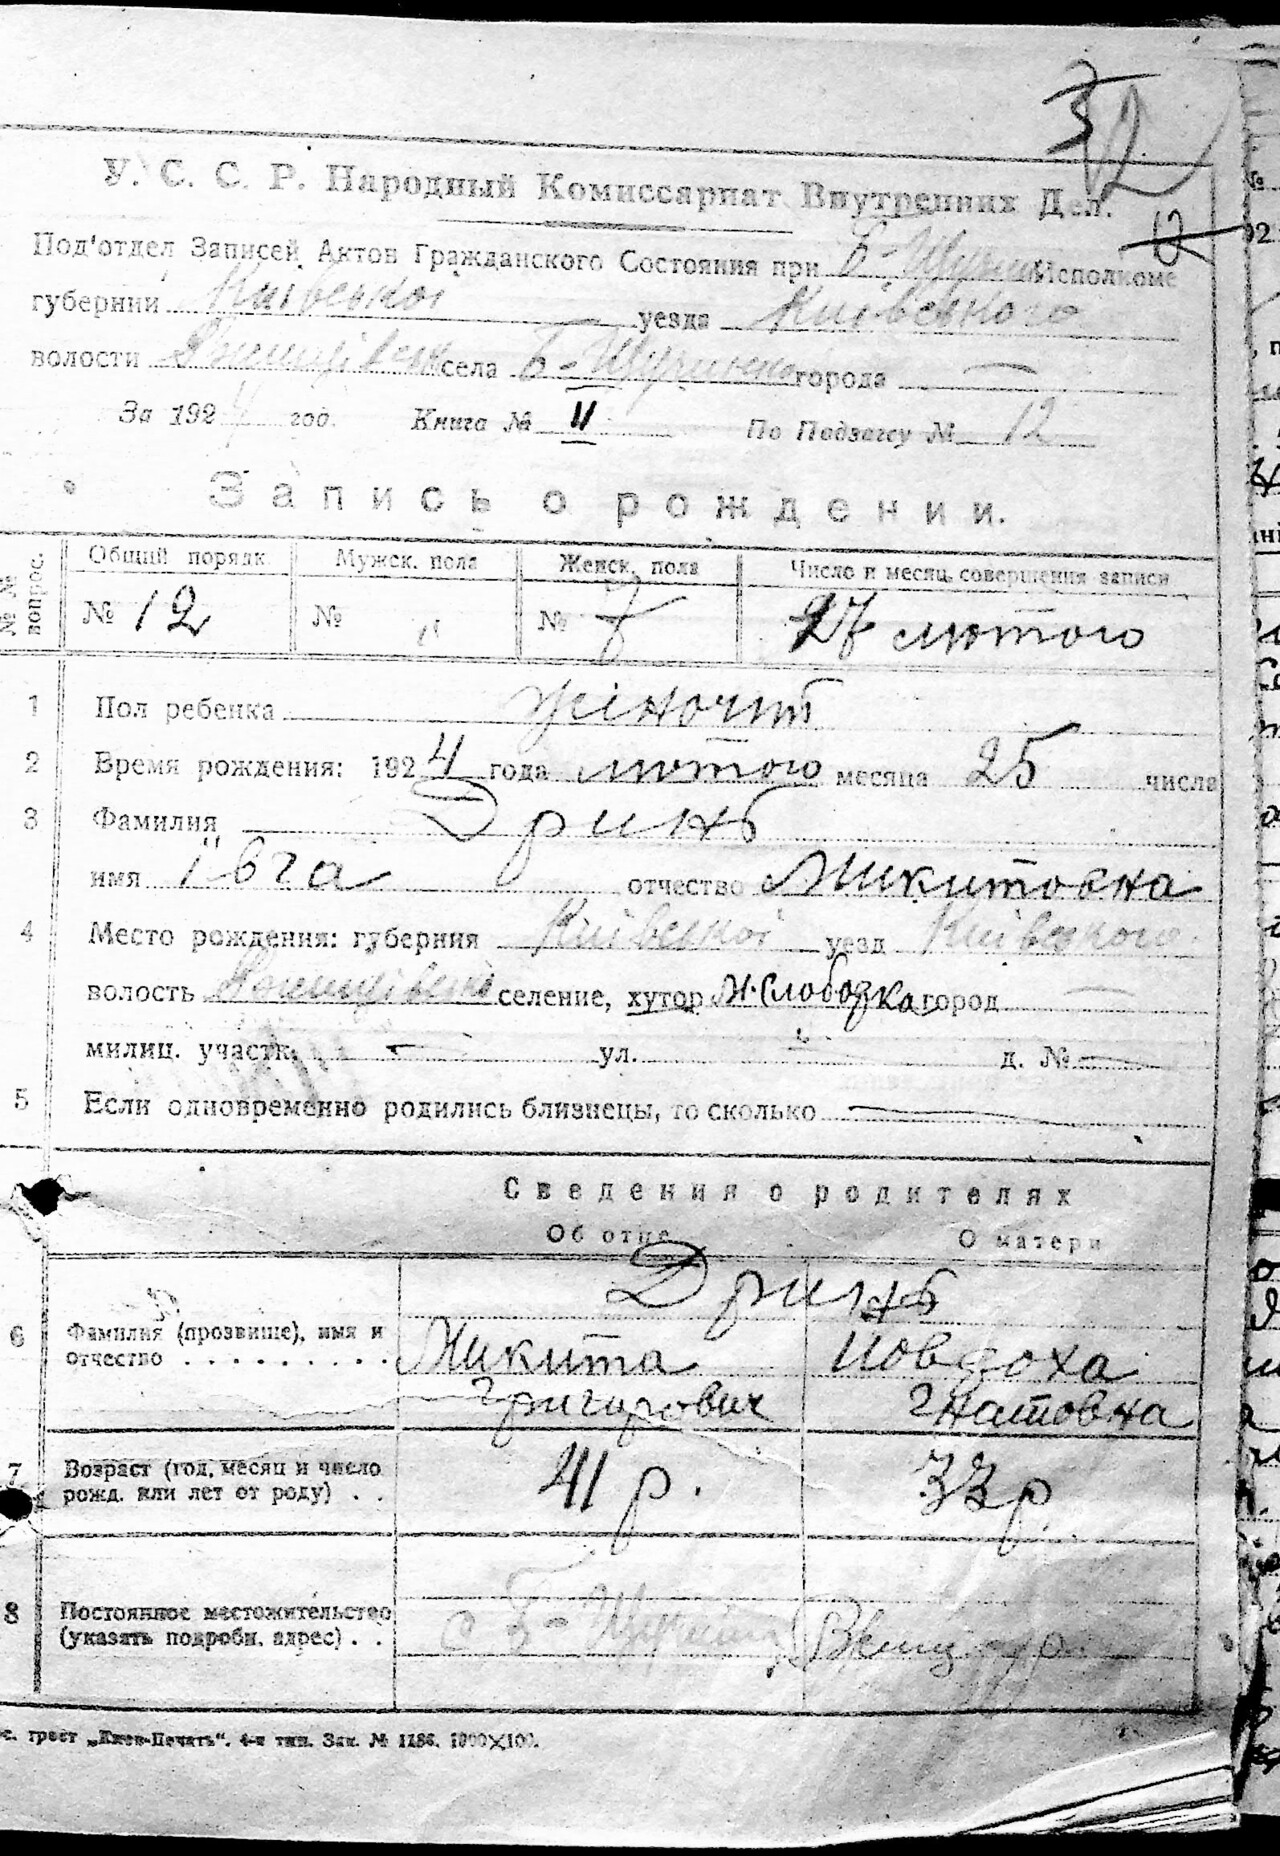 32
12
У. С. С. Р. Народный Комиссариат Внутренних Дел.
Под'отдел Записей Актов Гражданского Состояния при Б-Щучин Исполкоме
губернии Київської уезда Київського
волости села Б-Щучинка города —
За 1924 год. Книга № II По Подзагсу № 12
Запись о рождении.
№ № вопрос. Общий порядк. Мужск. пола Женск. пола Число и месяц совершения записи
№ 12 № " № 7 27 лютого
1 Пол ребенка жіночий
2 Время рождения: 1924 года лютого месяца 25 числа
3 Фамилия Дринь
имя Ївга отчество Микитовна
4 Место рождения: губерния Київської уезд Київського
волость селение, хутор М. Слободка город —
милиц. участк. — ул. д. № —
5 Если одновременно родились близнецы, то сколько —
Сведения о родителях
Об отце О матери
Дринь
6 Фамилия (прозвище), имя и Микита Йовдоха
отчество . . . . . . . . . Григорович Гнатовна
7 Возраст (год, месяц и число 41 р. 33 р
рожд. или лет от роду) . .
8 Постоянное местожительство с Б-Щучинка
(указать подробн. адрес) . .
трест „Киев-Печать". 4-я тип. Зак. № 1186. 1000×100.